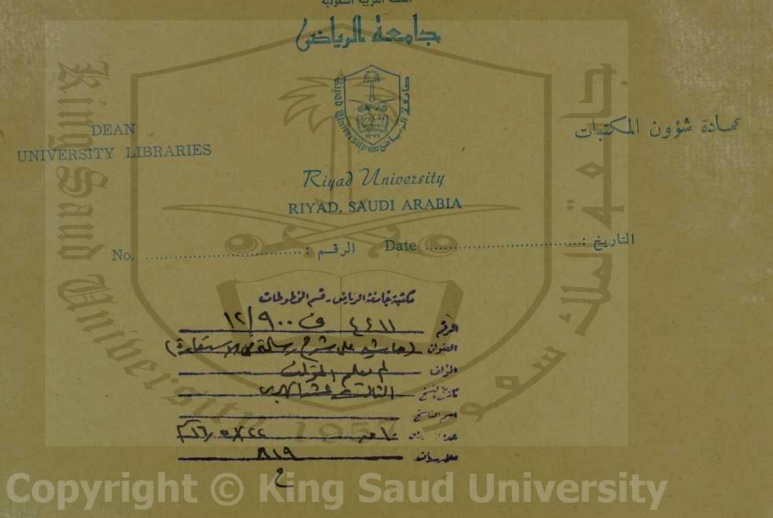 المملكة العربية السعودية
جامعة الرياض
DEAN
UNIVERSITY LIBRARIES
عمادة شؤون المكتبات
Riyad University
RIYAD, SAUDI ARABIA
No. الرقم : Date التاريخ :
مكتبة جامعة الرياض - قسم المخطوطات
الرقم ٤٤١١ ف ٩٠٠/١٢
العنوان (حاشية على شرح رسالة في الاستعارة)
المؤلف لم يعلم المؤلف
تاريخ النسخ الثالث عشر الهجري
اسم الناسخ
ملاحظات ٨١٩
King Saud University
جامعة الملك سعود
1957
Copyright © King Saud University